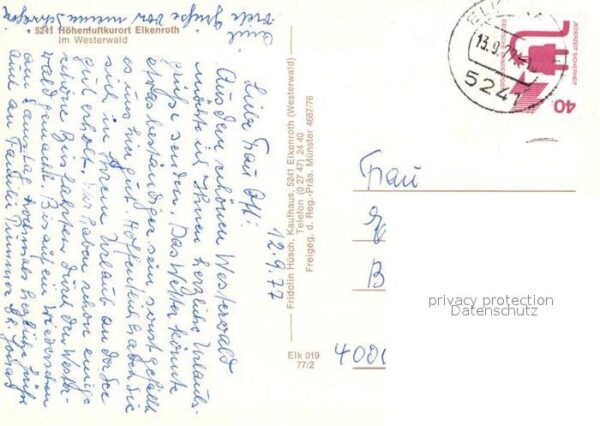 5241 Höhenluftkurort Elkenroth
im Westerwald
12.9.77
Liebe Frau Ott!
Aus dem schönen Westerwald
möchte ich Ihnen herzliche Urlaubs-
grüße senden. Das Wetter könnte
etwas beständiger sein, sonst gefällt
es uns hier gut. Hoffentlich haben Sie
sich in Ihrem Urlaub an der See
gut erholt. Wir haben schon einige
schöne Busfahrten durch den Wester-
wald gemacht. Bis auf ein Wiedersehen
am Samstag nochmals herzliche Grüße
auch an Familie
und
viele Grüße von meiner
Fridolin Hüsch, Kaufhaus, 5241 Elkenroth (Westerwald)
Telefon (0 27 47) 24 40
Freigeg. d. Reg.-Präs. Münster 4687/76
Elk 019
77/2
13.9.77
5241
JEDERZEIT SICHERHEIT
DEUTSCHE BUNDESPOST
40
Frau
E
B
400
privacy protection
Datenschutz